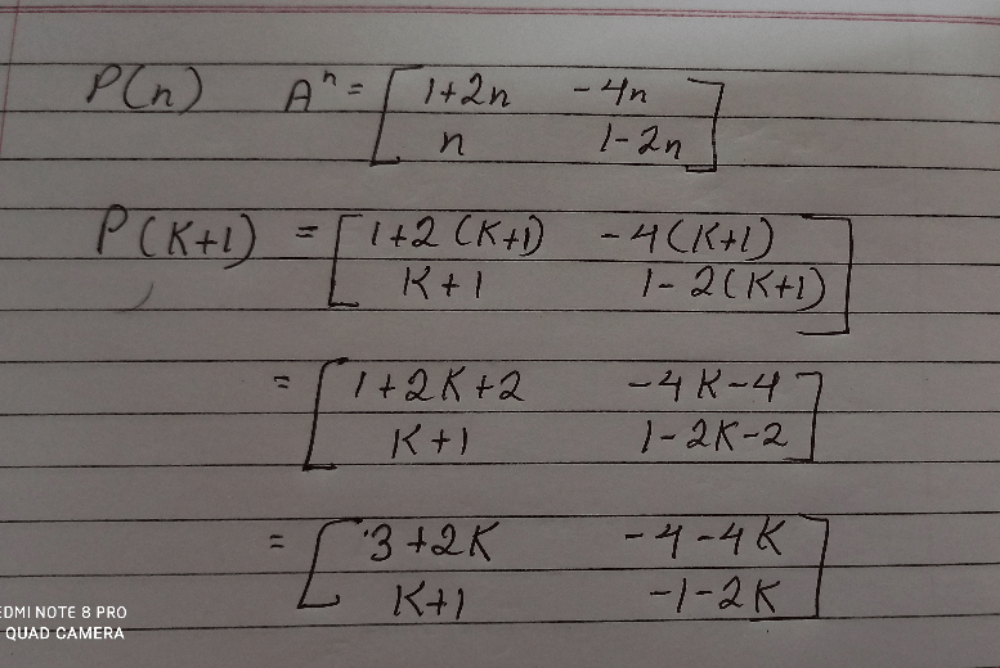 P(n) Aⁿ = [ 1+2n -4n
n 1-2n ]
P(K+1) = [ 1+2(K+1) -4(K+1)
K+1 1-2(K+1) ]
= [ 1+2K+2 -4K-4
K+1 1-2K-2 ]
= [ 3+2K -4-4K
K+1 -1-2K ]
EDMI NOTE 8 PRO
QUAD CAMERA